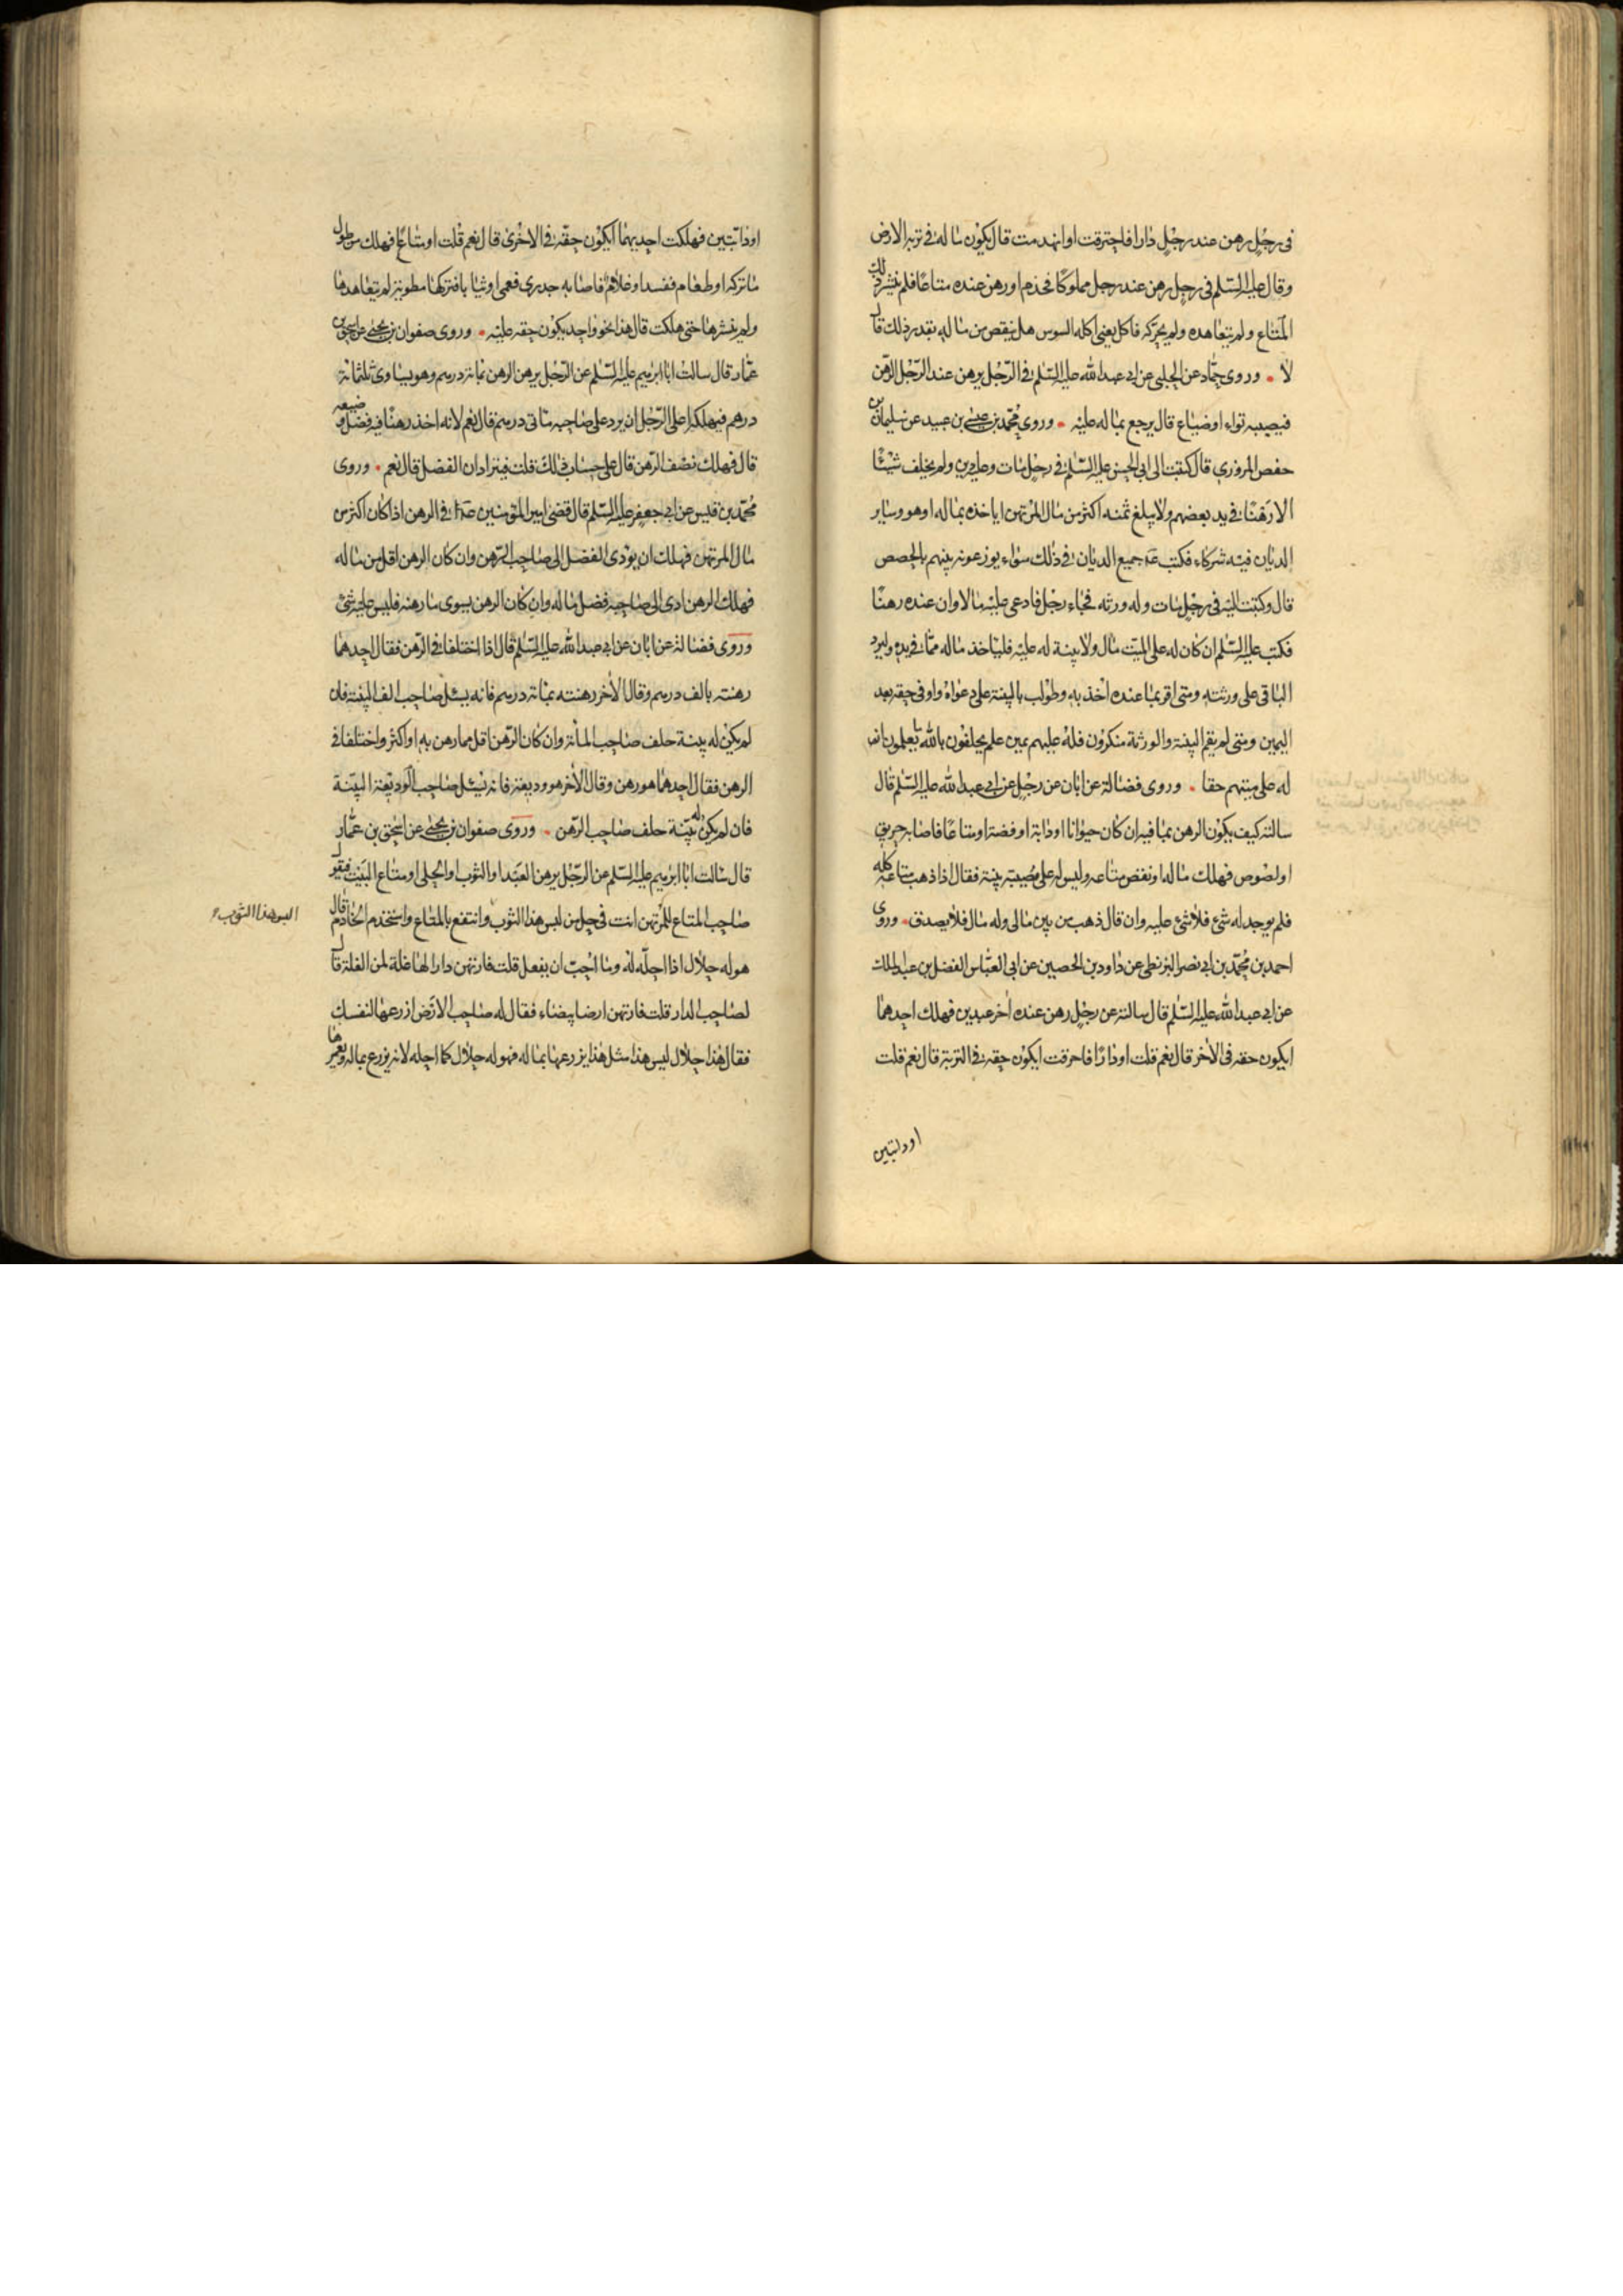 فى رجل رهن عند رجل دارا فاحترقت او انهدمت قال يكون ماله فى تربة الارض
وقال عليه السلم فى رجل رهن عند رجل مملوكا فجذم او رهن عنده متاعا فلم ينشر ذلك
المتاع ولم يتعاهده ولم يحركه فاكل يعنى اكله السوس هل ينقص من ماله بقدر ذلك قال
لا وروى حماد عن الحلبى عن ابى عبد الله عليه السلم فى الرجل يرهن عند الرجل الرهن
فيصيبه تواء او ضياع قال يرجع بماله عليه وروى محمد بن عيسى بن عبيد عن سليمان بن
حفص المروزى قال كتبت الى ابى الحسن عليه السلم فى رجل مات وعليه دين ولم يخلف شيئا
الا رهنا فى يد بعضهم ولا يبلغ ثمنه اكثر من مال المرتهن اياخذه بماله او هو وساير
الديان فيه شركاء فكتب جميع الديان فى ذلك سواء يوزعونه بينهم بالحصص
قال وكتبت اليه فى رجل مات وله ورثه فجاء رجل فادعى عليه مالا وان عنده رهنا
فكتب عليه السلم ان كان له على الميت مال ولا بينة له عليه فلياخذ ماله مما فى يده وليرد
الباقى على ورثته ومتى اقر بما عنده اخذ به وطولب بالبينة على دعواه واوفى حقه بعد
اليمين ومتى لم يقم البينة والورثة منكرون فله عليهم يمين علم يحلفون بالله ما يعلمون ان
له على ميتهم حقا وروى فضالة عن ابان عن رجل عن ابى عبد الله عليه السلم قال
سالته كيف يكون الرهن بما فيه ان كان حيوانا او دابة او فضة او متاعا فاصابه حريق
او لصوص فهلك ماله او نقص متاعه وليس له على مصيبته بينة فقال اذا ذهب متاعه كله
فلم يوجد له شئ فلا شئ عليه وان قال ذهب من بين مالى وله مال فلا يصدق وروى
احمد بن محمد بن ابى نصر البزنطى عن داود بن الحصين عن ابى العباس الفضل بن عبد الملك
عن ابى عبد الله عليه السلم قال سالته عن رجل رهن عنده اخر عبدين فهلك احدهما
ايكون حقه فى الاخر قال نعم قلت او دارا فاحرقت ايكون حقه فى التربة قال نعم قلت
او دابتين
او دابتين فهلكت احديهما ايكون حقه فى الاخرى قال نعم قلت او متاعا فهلك من طول
ما تركه او طعام ففسد او غلاما فاصابه جدرى فعمى او ثيابا فتركها مطوية لم يتعاهدها
ولم ينشرها حتى هلكت قال هذا نحو واحد يكون حقه عليه وروى صفوان بن يحيى عن اسحق بن
عمار قال سالت ابا ابرهيم عليه السلم عن الرجل يرهن الرهن بمائة درهم وهو يساوى ثلثمائة
درهم فيهلك اعلى الرجل ان يرد على صاحبه مائتى درهم قال نعم لانه اخذ رهنا فيه فضل وضيعه
قال فهلك نصف الرهن قال على حساب ذلك قلت فيترادان الفضل قال نعم وروى
محمد بن قيس عن ابى جعفر عليه السلم قال قضى امير المؤمنين فى الرهن اذا كان اكثر من
مال المرتهن فهلك ان يؤدى الفضل الى صاحب الرهن وان كان الرهن اقل من ماله
فهلك الرهن ادى الى صاحبه فضل ماله وان كان الرهن يسوى ما رهنه فليس عليه شئ
وروى فضالة عن ابان عن ابى عبد الله عليه السلم قال اذا اختلفا فى الرهن فقال احدهما
رهنته بالف درهم وقال الاخر رهنته بمائة درهم فانه يسئل صاحب الف البينة فان
لم يكن له بينة حلف صاحب المائة وان كان الرهن اقل مما رهن به او اكثر واختلفا فى
الرهن فقال احدهما هو رهن وقال الاخر هو وديعة فانه يسئل صاحب الوديعة البينة
فان لم يكن له بينة حلف صاحب الرهن وروى صفوان بن يحيى عن اسحق بن عمار
قال سالت ابا ابرهيم عليه السلم عن الرجل يرهن العبد او الثوب او الحلى او متاع البيت فيقول
صاحب المتاع للمرتهن انت فى حل من لبس هذا الثوب وانتفع بالمتاع واستخدم الخادم قال
البس هذا الثوب
هو له حلال اذا احله له وما احب ان يفعل قلت فارتهن دارا لها غلة لمن الغلة قال
لصاحب الدار قلت فارتهن ارضا بيضاء فقال له صاحب الارض ازرعها لنفسك
فقال هذا حلال ليس هذا مثل هذا يزرعها بماله فهو له حلال كما احله لانه يزرع بماله ويعمرها